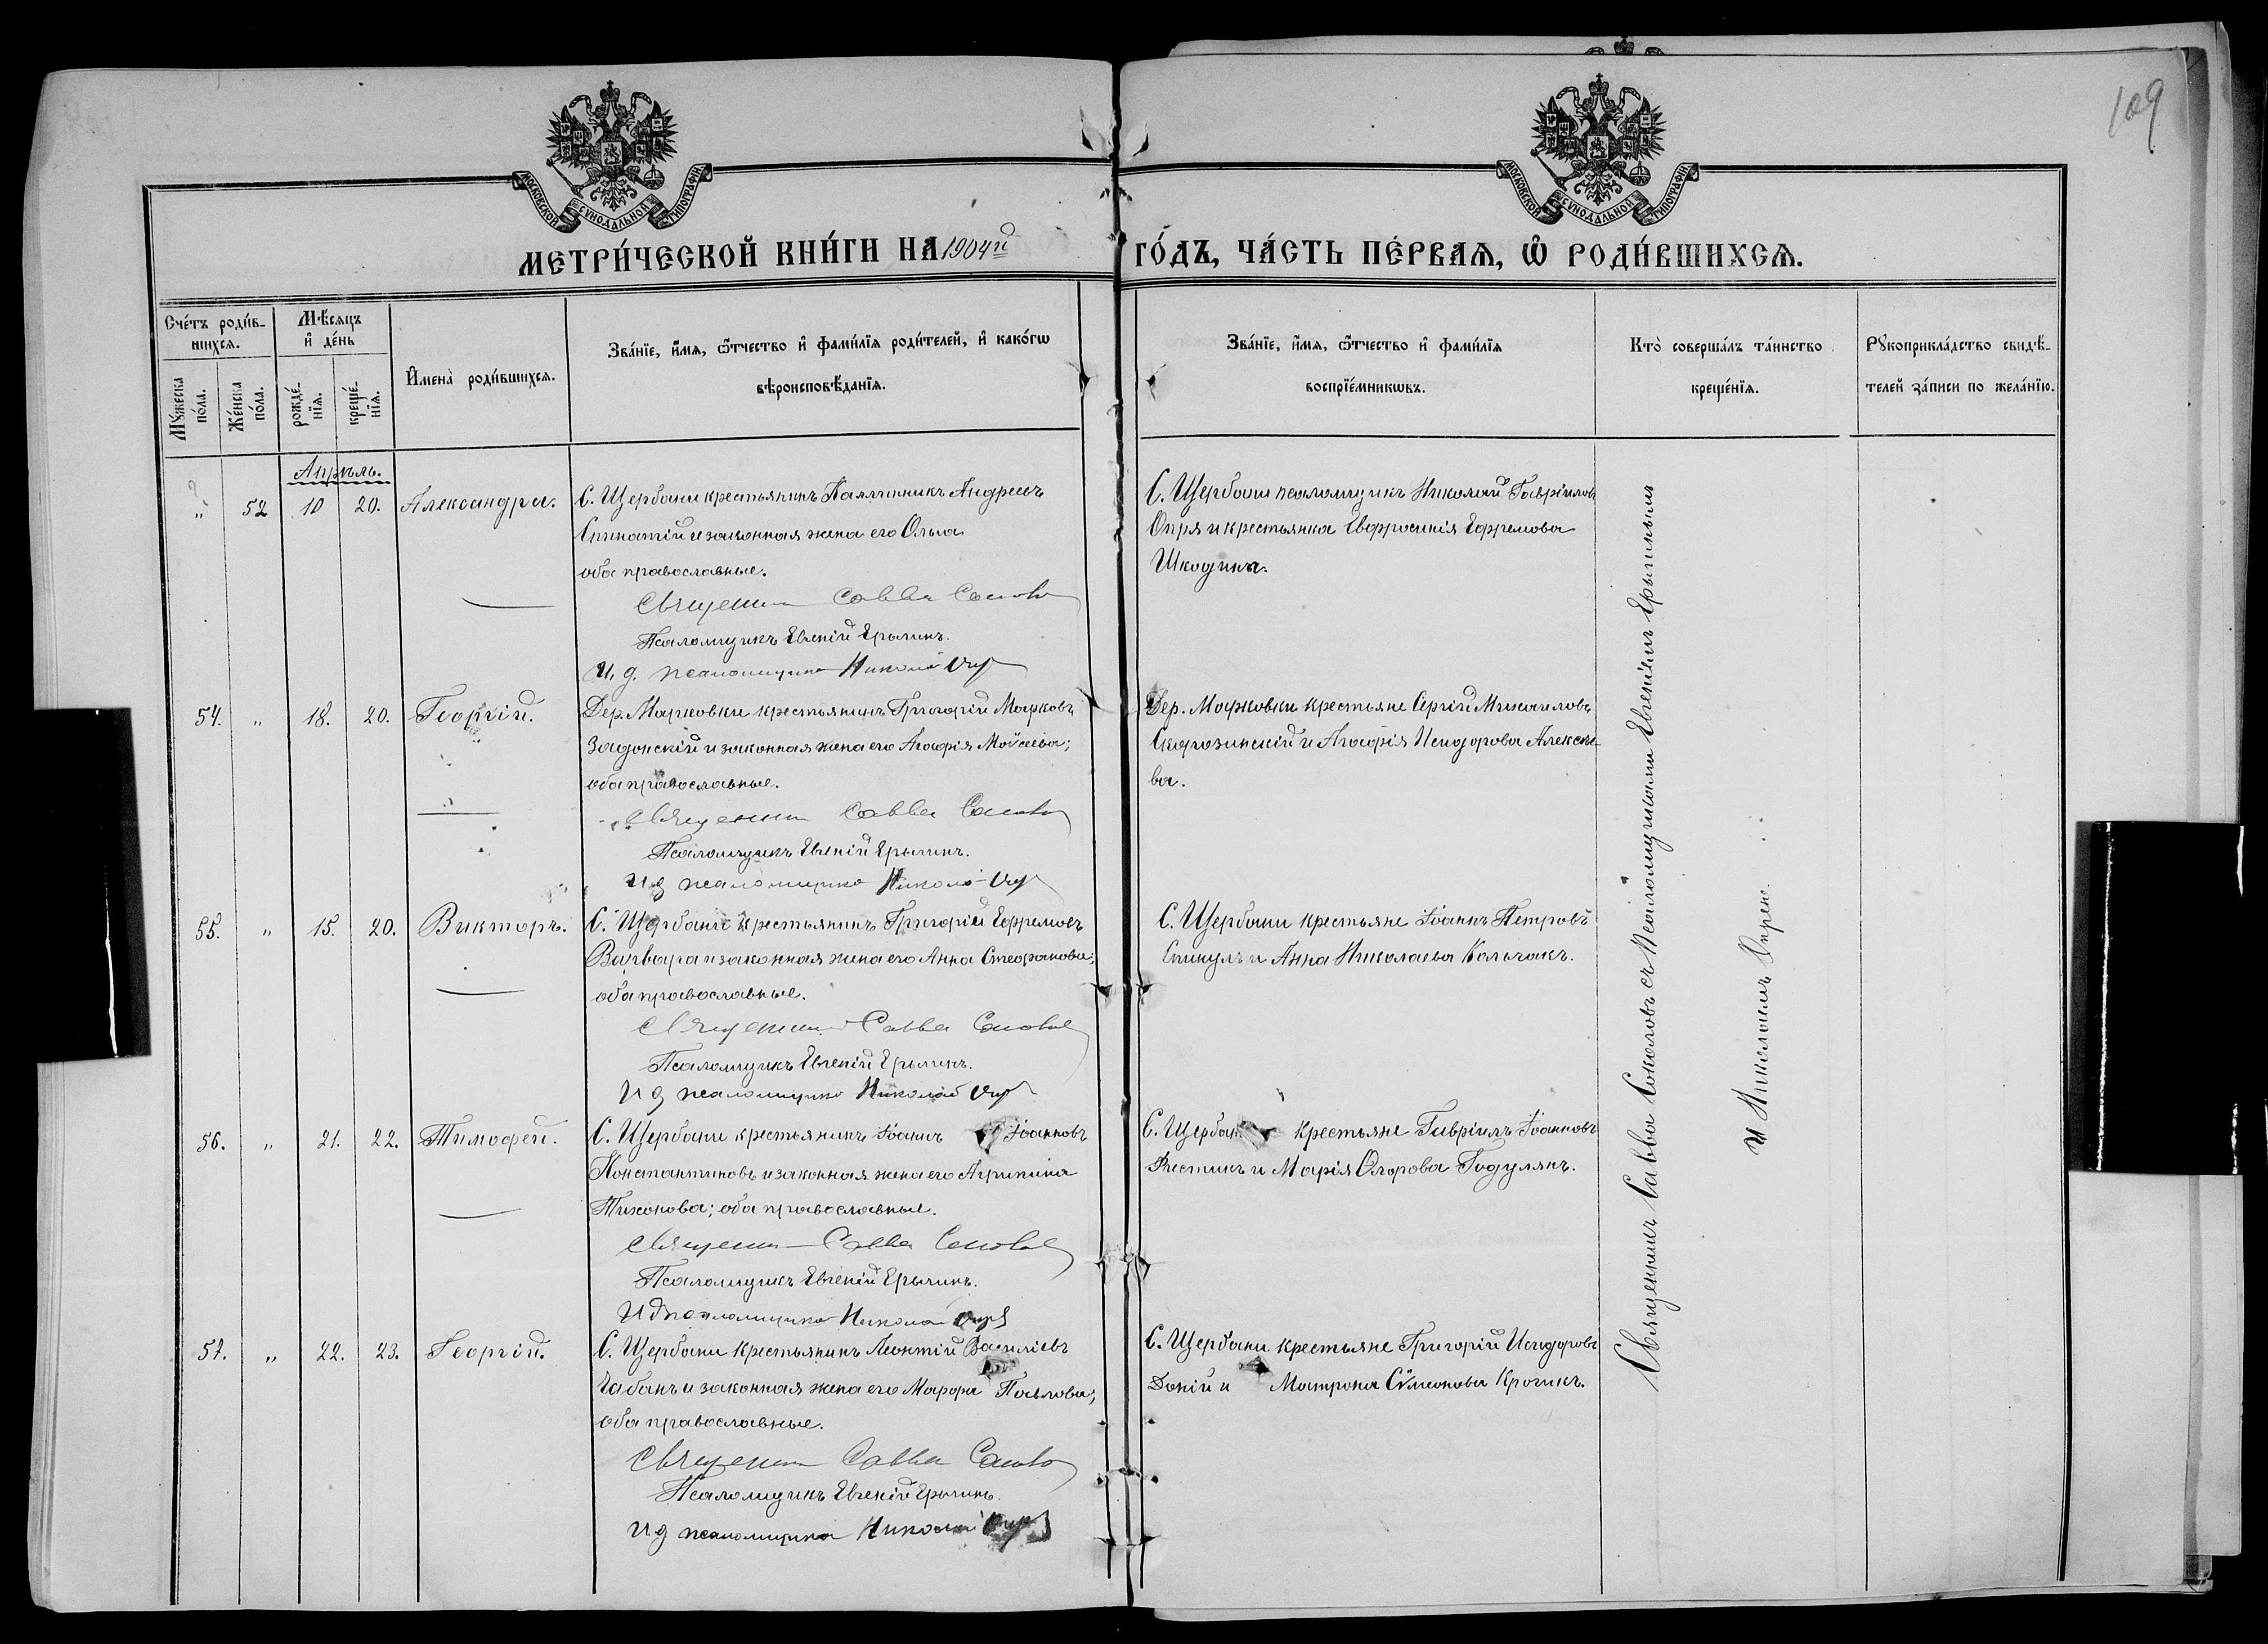 109
МОСКОВСКОЙ СѴНОДАЛЬНОЙ ТИПОГРАФІИ.
МОСКОВСКОЙ СѴНОДАЛЬНОЙ ТИПОГРАФІИ.
МЕТРИ́ЧЕСКОЙ КНИ́ГИ НА 1904й ГО́ДЪ, ЧА́СТЬ ПЕ́РВАЯ, Ѡ҆ РОДИ́ВШИХСЯ.
Сче́тъ роди́в-
шихся.
Мꙋ́жеска по́ла.
Же́нска по́ла.
Мѣ́сяцъ
и҆ де́нь
рожде́-
нїя.
креще́-
нїя.
И҆мена̀ роди́вшихся.
Зва́нїе, и҆́мя, ѻ҆́тчество и҆ фами́лїя роди́телей, и҆ како́гѡ
вѣроисповѣ́данїя.
Зва́нїе, и҆́мя, ѻ҆́тчество и҆ фами́лїя
воспрїе́мникѡвъ.
Кто̀ соверша́лъ та́инство
креще́нїя.
Рꙋкоприкла́дство свидѣ́-
телей за́писи по жела́нїю.
Апрѣль.
„ 52 10 20. Александра.
С. Щербани крестьянинъ Андреевъ
и законная жена его Ольга
оба православные.
Священникъ Савва Соколовъ
Псаломщикъ Евгеній Ерыгинъ.
И. д. псаломщика Николай
С. Щербани псаломщикъ Николай Гавріиловъ
Опря и крестьянка Евфросинія Ефремова
54. „ 18. 20. Георгій.
Дер. Марковки крестьянинъ Григорій Марковъ
Задонскій и законная жена его Агафія Моѵсеева;
оба православные.
Священникъ Савва Соколовъ
Псаломщикъ Евгеній Ерыгинъ.
И д псаломщика Николай
Дер. Марковки крестьяне Сергій Михаиловъ
и Агафія Исидорова Алексѣе-
ва.
55. „ 15. 20. Викторъ.
С. Щербани крестьянинъ Григорій Ефремовъ
Варвара и законная жена его Анна Стефанова;
оба православные.
Священникъ Савва Соколовъ
Псаломщикъ Евгеній Ерыгинъ.
И д псаломщика Николай
С. Щербани крестьяне Іоаннъ Петровъ
и Анна Николаева Кольчакъ.
56. „ 21. 22. Тимофей.
С. Щербани крестьянинъ Іоаннъ Іоанновъ
Константиновъ и законная жена его Агрипина
Тихонова; оба православные.
Священникъ Савва Соколовъ
Псаломщикъ Евгеній Ерыгинъ.
И д псаломщика Николай
С. Щербан крестьяне Гавріилъ Іоанновъ
и Марія Годулянъ.
57. „ 22. 23. Георгій.
С. Щербани крестьянинъ Леонтій Василіевъ
Чабанъ и законная жена его Марфа Павлова;
оба православные.
Священникъ Савва Соколовъ
Псаломщикъ Евгеній Ерыгинъ.
И д псаломщика Николай
С. Щербани крестьяне Григорій Исидоровъ
Доній и Матрона Сѵмеонова
Священникъ Савва Соколовъ съ псаломщиками Евгеніемъ Ерыгинымъ
и Николаемъ Опрею.